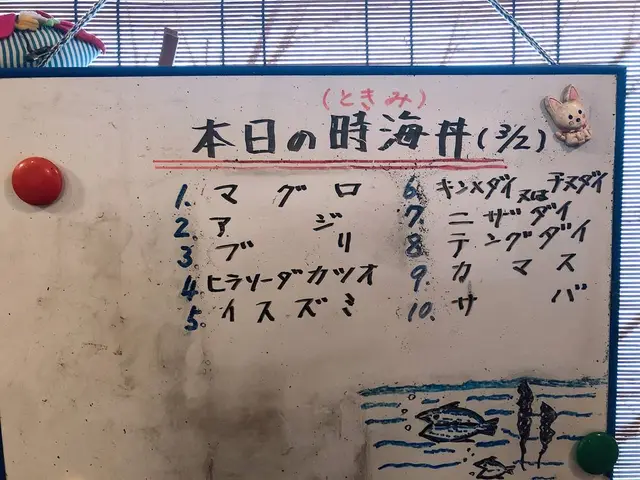 (ときみ)
本日の時海丼(3/2)
1. マグロ
2. アジ
3 ブリ
4. ヒラソーダカツオ
5. イスズミ
6. キンメダイ又はチヌダイ
7 ニザダイ
8 テングダイ
9. カマス
10. サバ